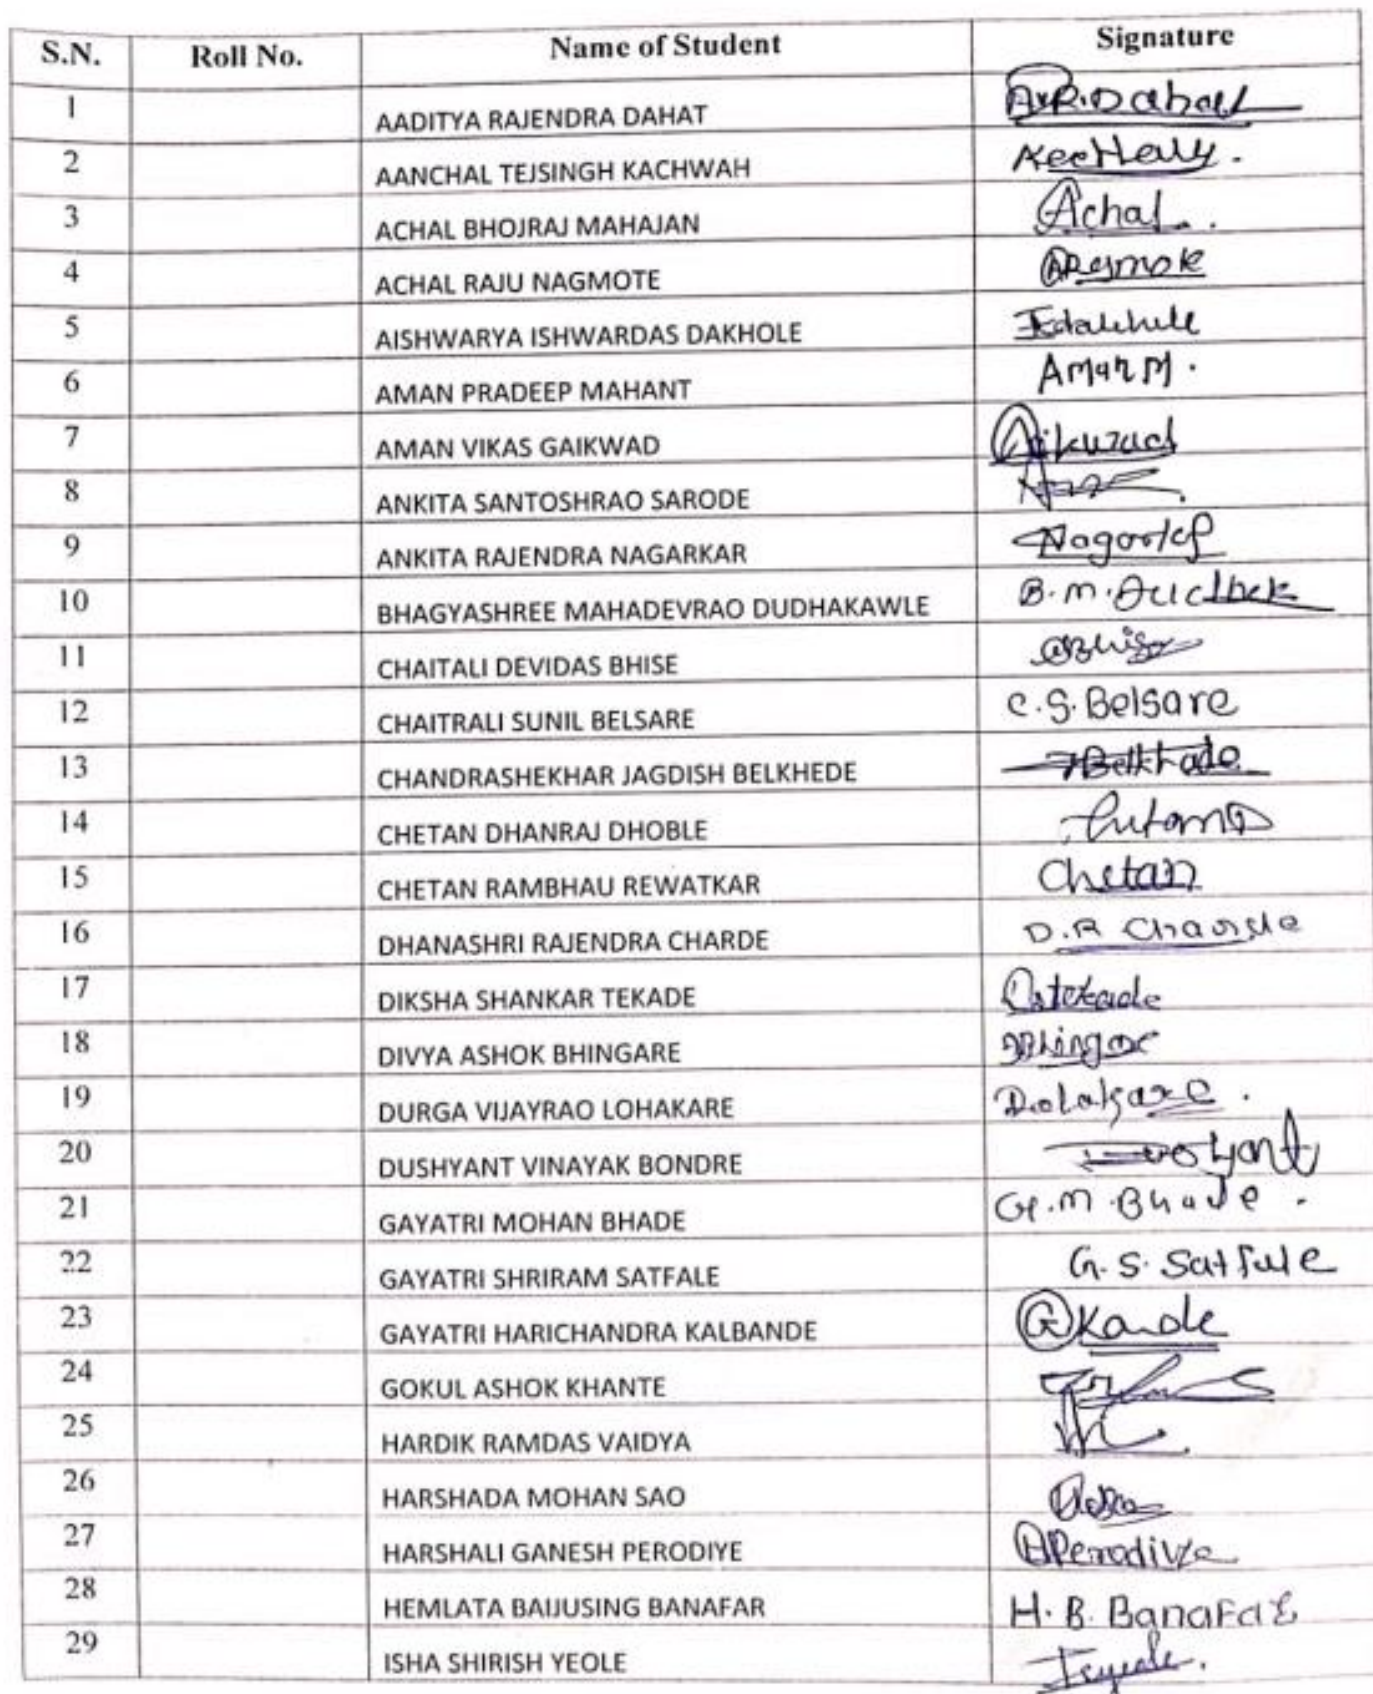 S.N. Roll No. Name of Student Signature
1 AADITYA RAJENDRA DAHAT A.R.Dahat
2 AANCHAL TEJSINGH KACHWAH
3 ACHAL BHOJRAJ MAHAJAN Achal
4 ACHAL RAJU NAGMOTE
5 AISHWARYA ISHWARDAS DAKHOLE
6 AMAN PRADEEP MAHANT Aman M.
7 AMAN VIKAS GAIKWAD
8 ANKITA SANTOSHRAO SARODE
9 ANKITA RAJENDRA NAGARKAR
10 BHAGYASHREE MAHADEVRAO DUDHAKAWLE B.M.
11 CHAITALI DEVIDAS BHISE
12 CHAITRALI SUNIL BELSARE C.S.Belsare
13 CHANDRASHEKHAR JAGDISH BELKHEDE
14 CHETAN DHANRAJ DHOBLE
15 CHETAN RAMBHAU REWATKAR Chetan
16 DHANASHRI RAJENDRA CHARDE D.R Charde
17 DIKSHA SHANKAR TEKADE
18 DIVYA ASHOK BHINGARE
19 DURGA VIJAYRAO LOHAKARE
20 DUSHYANT VINAYAK BONDRE
21 GAYATRI MOHAN BHADE G.M.Bhade.
22 GAYATRI SHRIRAM SATFALE G.S.Satfale
23 GAYATRI HARICHANDRA KALBANDE
24 GOKUL ASHOK KHANTE
25 HARDIK RAMDAS VAIDYA
26 HARSHADA MOHAN SAO
27 HARSHALI GANESH PERODIYE
28 HEMLATA BAIJUSING BANAFAR H.B.Banafar
29 ISHA SHIRISH YEOLE